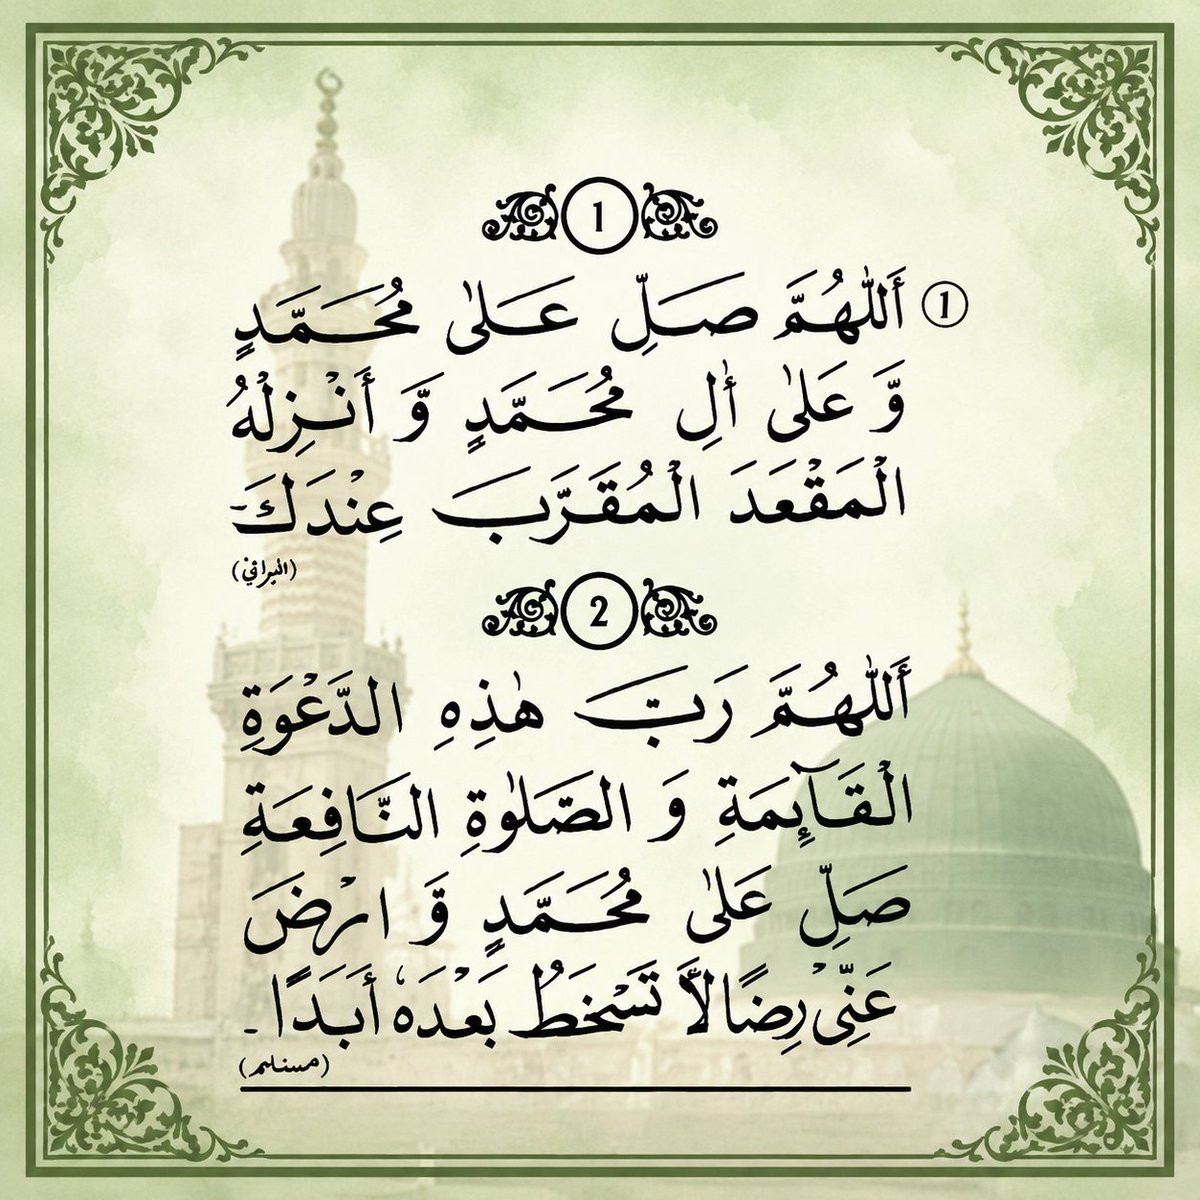 1
① أَللّٰهُمَّ صَلِّ عَلٰى مُحَمَّدٍ
وَّ عَلٰى أٰلِ مُحَمَّدٍ وَّ أَنْزِلْهُ
الْمَقْعَدَ الْمُقَرَّبَ عِنْدَكَ
2
أَللّٰهُمَّ رَبَّ هٰذِهِ الدَّعْوَةِ
الْقَآئِمَةِ وَ الصَّلٰوةِ النَّافِعَةِ
صَلِّ عَلٰى مُحَمَّدٍ وَّ ارْضَ
عَنِّى رِضًا لَّا تَسْخَطُ بَعْدَهٗ أَبَدًا۔